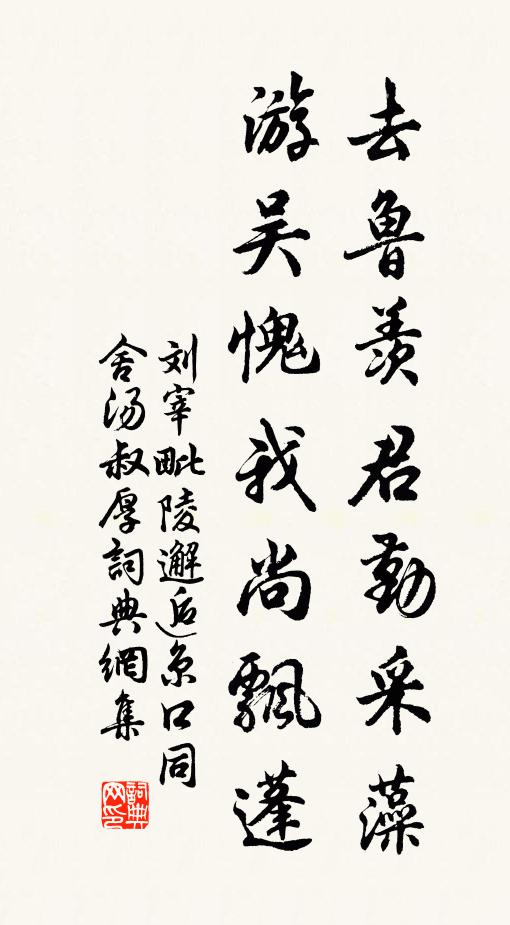 去鲁羡君勤采藻
游吴愧我尚飘蓬
刘宰毗陵邂逅京口同
舍汤叔厚詞典網集
詞典网印